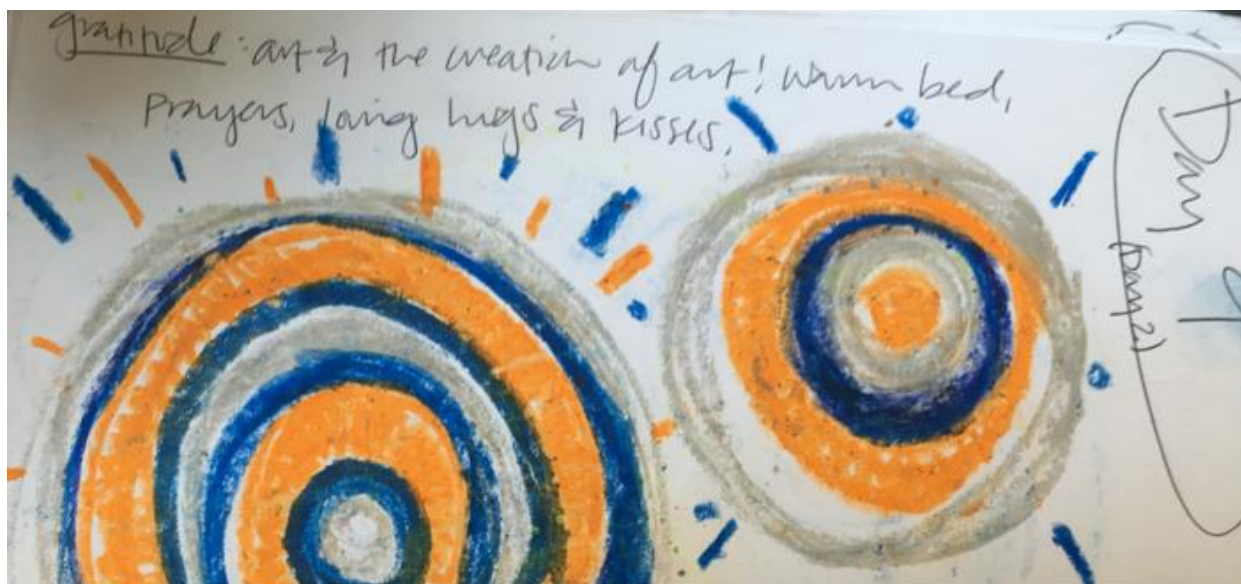 gratitude: art & the creation of art! warm bed,
Prayers, loving hugs & kisses.
Day